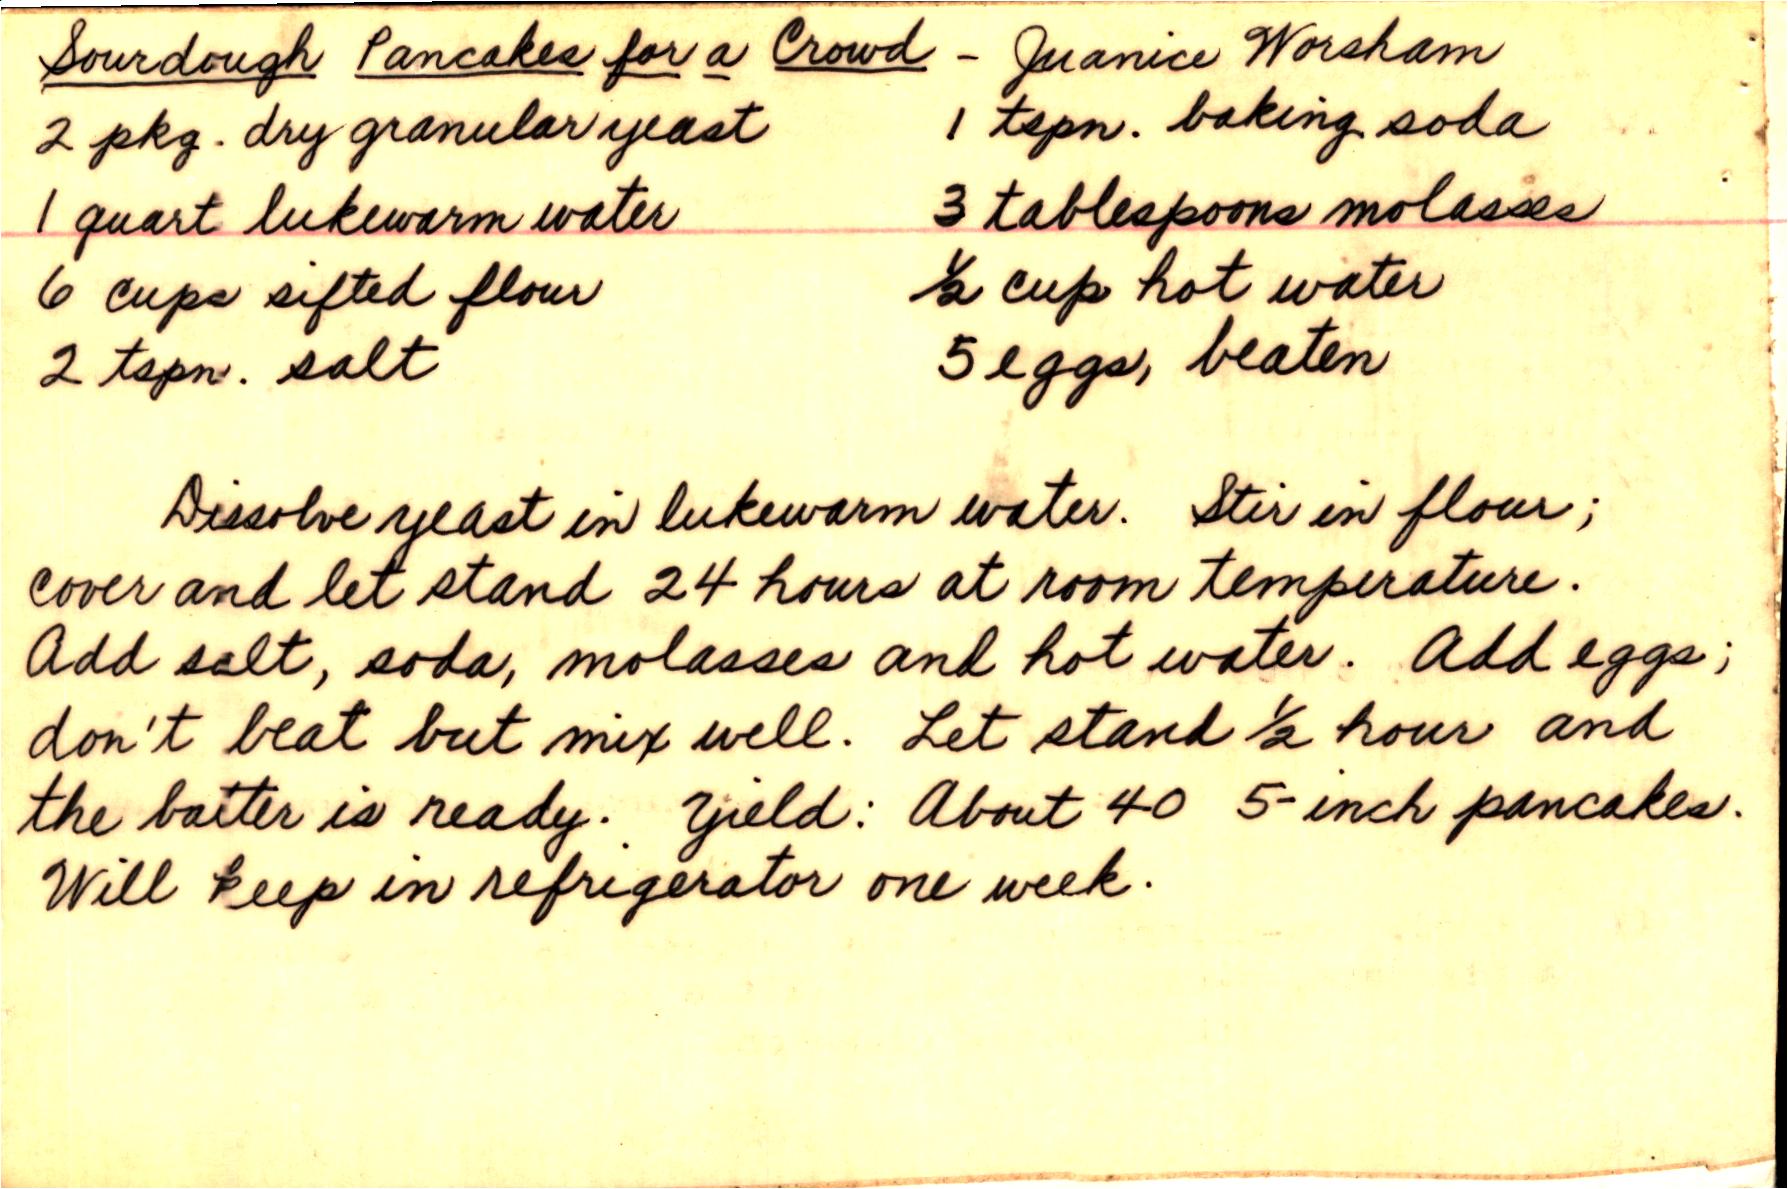 Sourdough Pancakes for a Crowd - Juanice Worsham
2 pkg. dry granular yeast 1 tspn. baking soda
1 quart lukewarm water 3 tablespoons molasses
6 cups sifted flour ½ cup hot water
2 tspn. salt 5 eggs, beaten
Dissolve yeast in lukewarm water. Stir in flour;
cover and let stand 24 hours at room temperature.
Add salt, soda, molasses and hot water. Add eggs;
don't beat but mix well. Let stand ½ hour and
the batter is ready. Yield: About 40 5-inch pancakes.
Will keep in refrigerator one week.